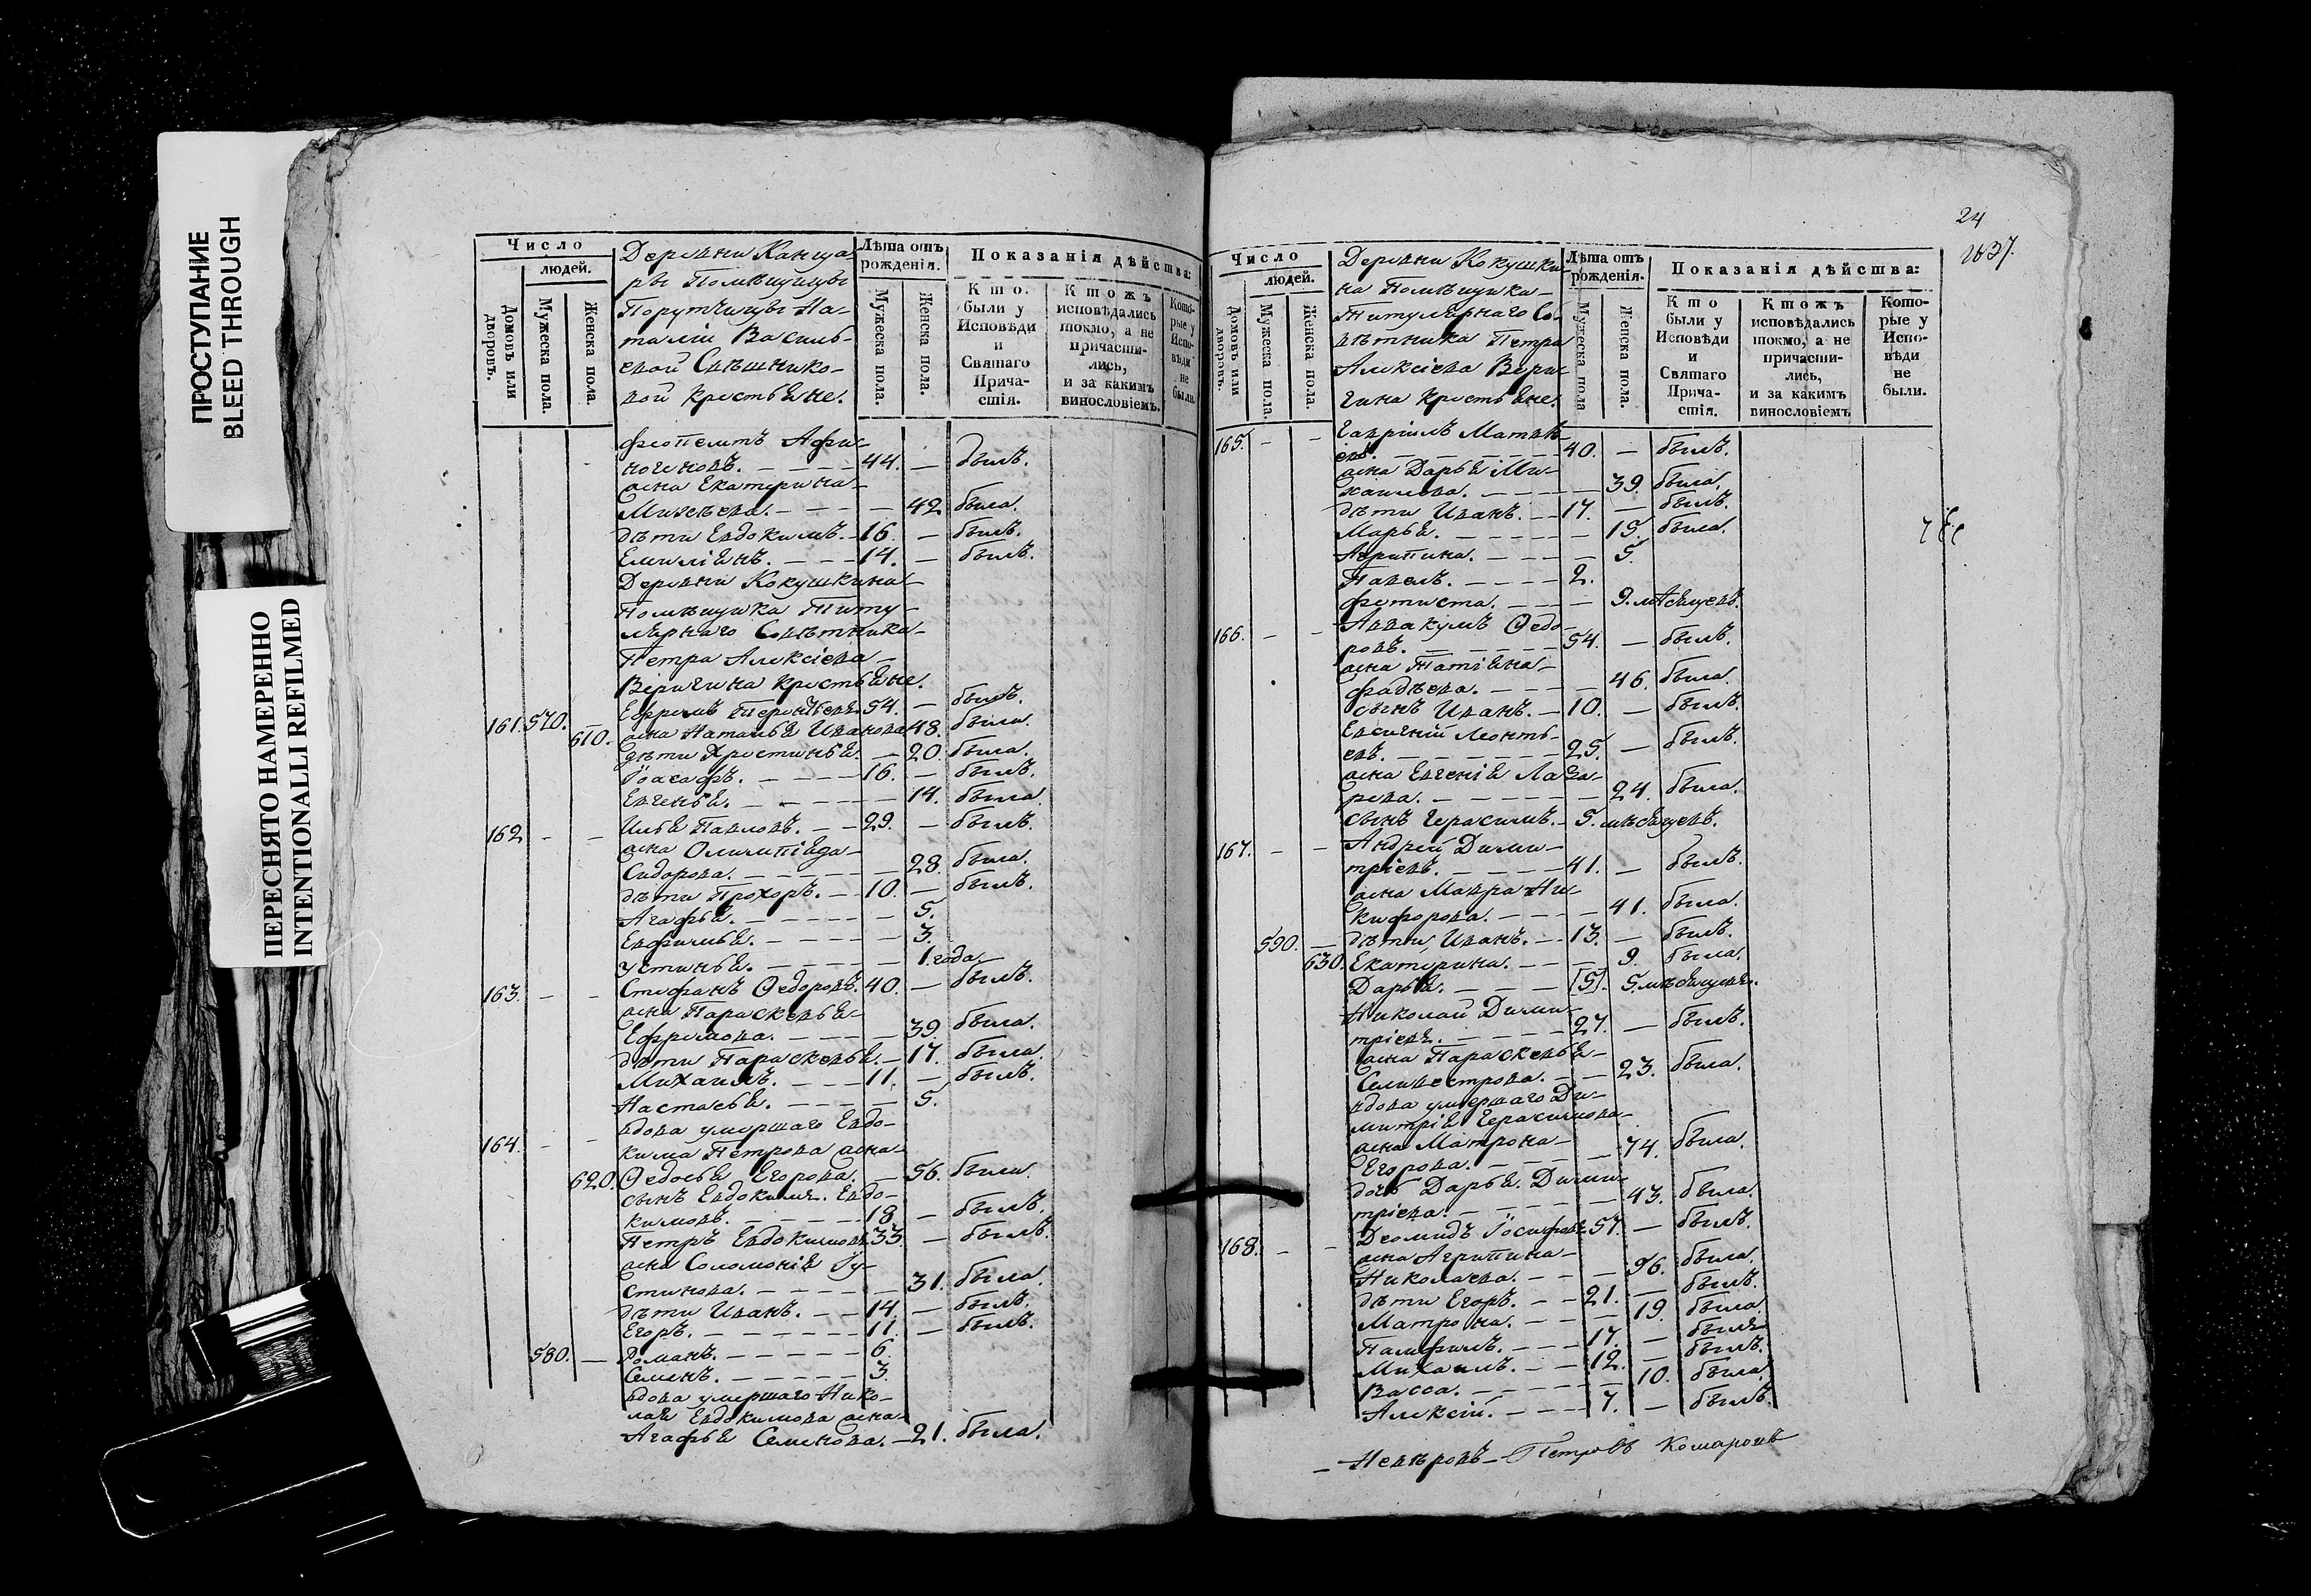 ПРОСТУПАНИЕ
BLEED THROUGH
ПЕРЕСНЯТО НАМЕРЕННО
INTENTIONALLI REFILMED
Число
людей.
Домовъ или дворовъ.
Мужеска пола.
Женска пола.
Деревни Канца-
ры Помѣщицы
Порутчицы На-
таліи Василь-
евой Свѣшнико-
вой крестьяне.
Лѣта отъ рожденія.
Мужеска пола.
Женска пола.
Показанія дѣйства:
Кто были у Исповѣди и Святаго Прича-стія.
Ктожъ исповѣдались токмо, а не причасти-лись, и за какимъ винословіемъ.
Кото-рые у Испо-вѣди не были.
Феопемтъ Афи-
ногеновъ. 44. — былъ.
жена Екатерина
Михѣева. — 42 была.
дѣти Евдокимъ. 16. — былъ.
Емиліянъ. 14. — былъ.
Деревни Кокушкина
Помѣщика Титу-
лярнаго Совѣтника
Петра Алексіева
Веригина крестьяне.
161. 570. Ефремъ Терентьевъ 54. — былъ.
610. жена Наталья Иванова 48. была.
дѣти Христинья. — 20. была.
Іоасафъ. 16. — былъ.
Евгенья. — 14. была.
162 — — Илья Павловъ. 29. — былъ.
жена Олимпіяда
Сидорова. — 28. была.
дѣти Прохоръ. 10. — былъ.
Агафья. — 5.
Евфимья. — 3.
Устинья. — 1. года.
163. — — Стефанъ Ѳедоровъ. 40. — былъ.
жена Параскевья
Ефремова. — 39. была.
дѣти Параскевья. — 17. была.
Михаилъ. 11. — былъ.
Настасья. — 5.
вдова умершаго Евдо-
164. — — кима Петрова жена
620. Ѳедосья Егорова. — 56. была.
сынъ Евдокимъ Евдо-
кимовъ. 18 — былъ.
Петръ Евдокимовъ 33. — былъ.
жена Соломонія Іу-
стинова. — 31. была.
дѣти Иванъ. 14. — былъ.
Егоръ. 11. — былъ.
580. — Романъ. 6.
Семенъ. 3.
вдова умершаго Нико-
лая Евдокимова жена
Агафья Семенова. — 21. была.
24
1837.
Число
людей.
Домовъ или дворовъ.
Мужеска пола.
Женска пола.
Деревни Кокушки-
на Помѣщика
Титулярнаго Со-
вѣтника Петра
Алексіева Вери-
гина крестьяне.
Лѣта отъ рожденія.
Мужеска пола
Женска пола.
Показанія дѣйства:
Кто были у Исповѣди и Святаго Прича-стія.
Ктожъ исповѣдались токмо, а не причасти-лись, и за какимъ винословіемъ
Кото-рые у Испо-вѣди не были.
165. — — Гавріилъ Матвѣ-
евъ. 40. — былъ.
жена Дарья Ми-
хаилова. — 39. была.
дѣти Иванъ. 17. — былъ.
Марья. — 15. была.
Агрипина. — 5.
Павелъ. 2.
Фетиста. — 9. мѣсяцевъ.
166. — — Аввакумъ Ѳедо-
ровъ. 54. — былъ.
жена Татіяна
Фадѣева. — 46. была.
сынъ Иванъ. 10. — былъ.
Евсигній Леонть-
евъ. 25. — былъ.
жена Евгенія Лаза-
рева. — 24. была.
сынъ Герасимъ. 5. мѣсяцевъ.
167. — — Андрей Дими-
тріевъ. 41. — былъ.
жена Мавра Ни-
кифорова. — 41. была.
590. — дѣти Иванъ. 13. — былъ.
630. Екатерина. — 9. была.
Дарья. [5]. 5. мѣсяцевъ.
Николай Дими-
тріевъ. 27. — былъ.
жена Параскевья
Селивестрова. — 23. была.
вдова умершаго Ди-
митрія Герасимова
жена Матрона
Егорова. — 74. была.
дочь Дарья Дими-
тріева. — 43. была.
168. — — Деомидъ Іосифовъ 57. — былъ.
жена Агрипина
Николаева. — 56. была.
дѣти Егоръ. 21. — былъ.
Матрона. — 19. была.
Памфилъ. 17. — былъ.
Михаилъ. 12. — былъ.
Васса. — 10. была.
Алексій. 7. — былъ.
Петровъ